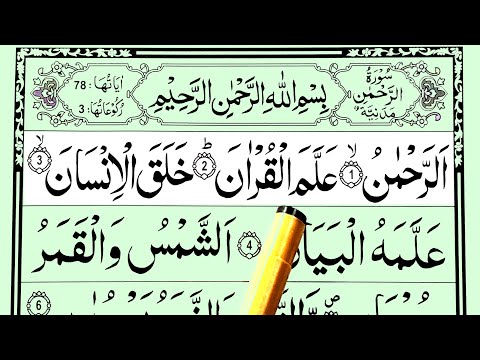 سُورَةُ الرَّحْمٰنِ مَدَنِيَّةٌ
بِسْمِ اللهِ الرَّحْمٰنِ الرَّحِيْمِ
اٰيَاتُهَا: 78
رُكُوْعَاتُهَا: 3
اَلرَّحْمٰنُ ۙ 1 عَلَّمَ الْقُرْاٰنَ ؕ 2 خَلَقَ الْاِنْسَانَ ۙ 3
عَلَّمَهُ 4 اَلشَّمْسُ وَالْقَمَرُ
6